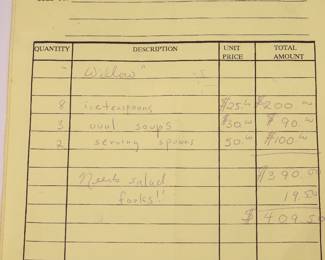 QUANTITY DESCRIPTION UNIT PRICE TOTAL AMOUNT
"Willow"
8 iceteaspoons $25.00 $200.00
3 oval soups $30.00 $90.00
2 serving spoons 50.00 $100.00
$390.00
Needs salad 19.50
forks!! $409.50